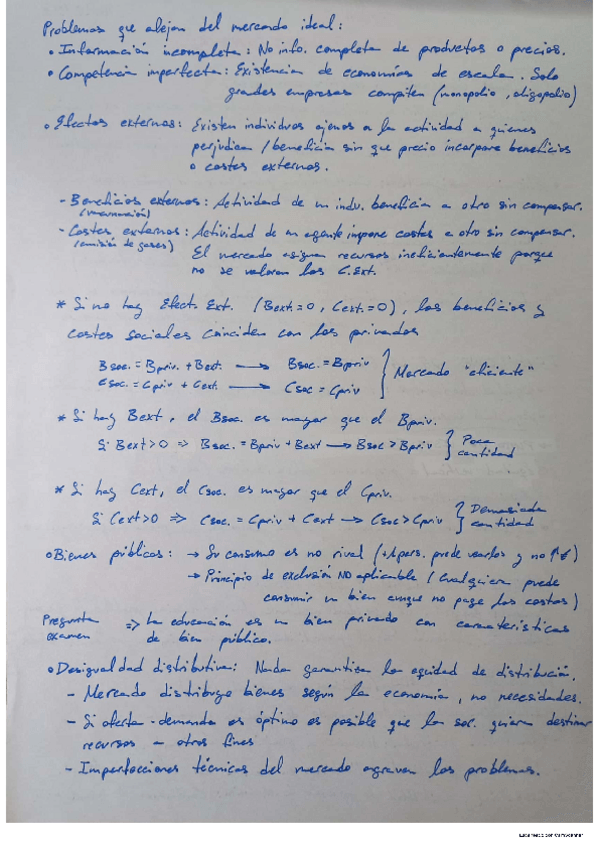 Problemas que alejan del mercado ideal:
• Información incompleta: No info. completa de productos o precios.
• Competencia imperfecta: Existencia de economías de escala. Solo
grandes empresas compiten (monopolio, oligopolio)
• Efectos externos: Existen individuos ajenos a la actividad a quienes
perjudica / beneficia sin que precio incorpore beneficios
o costes externos.
- Beneficios externos: Actividad de un indv. beneficia a otro sin compensar.
- Costes externos: Actividad de un agente impone costes a otro sin compensar.
(emisión de gases)
El mercado asigna recursos ineficientemente porque
no se valoran los C.Ext.
* Si no hay Efect. Ext. (Bext.=0, Cext.=0), los beneficios y
costes sociales coinciden con los privados
Bsoc. = Bpriv. + Bext. → Bsoc. = Bpriv
Csoc. = Cpriv + Cext. → Csoc = Cpriv } Mercado "eficiente"
* Si hay Bext, el Bsoc. es mayor que el Bpriv.
Si Bext>0 => Bsoc. = Bpriv + Bext → Bsoc > Bpriv } Poca
cantidad
* Si hay Cext, el Csoc. es mayor que el Cpriv.
Si Cext>0 => Csoc. = Cpriv + Cext → Csoc > Cpriv } Demasiada
cantidad
• Bienes públicos: → Su consumo es no rival (+1 pers. puede usarlos y no ↑€)
→ Principio de exclusión NO aplicable (Cualquiera puede
consumir un bien aunque no pague los costos)
Pregunta examen => La educación es un bien privado con características
de bien público.
• Desigualdad distributiva: Nada garantiza la equidad de distribución.
- Mercado distribuye bienes según la economía, no necesidades.
- Si oferta-demanda es óptimo es posible que la soc. quiera destinar
recursos a otros fines
- Imperfecciones técnicas del mercado agravan los problemas.